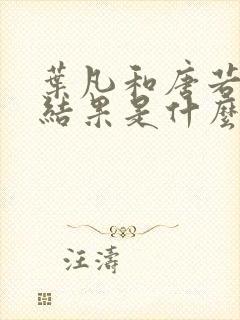 葉凡和唐若
結果是什麼
汪濤